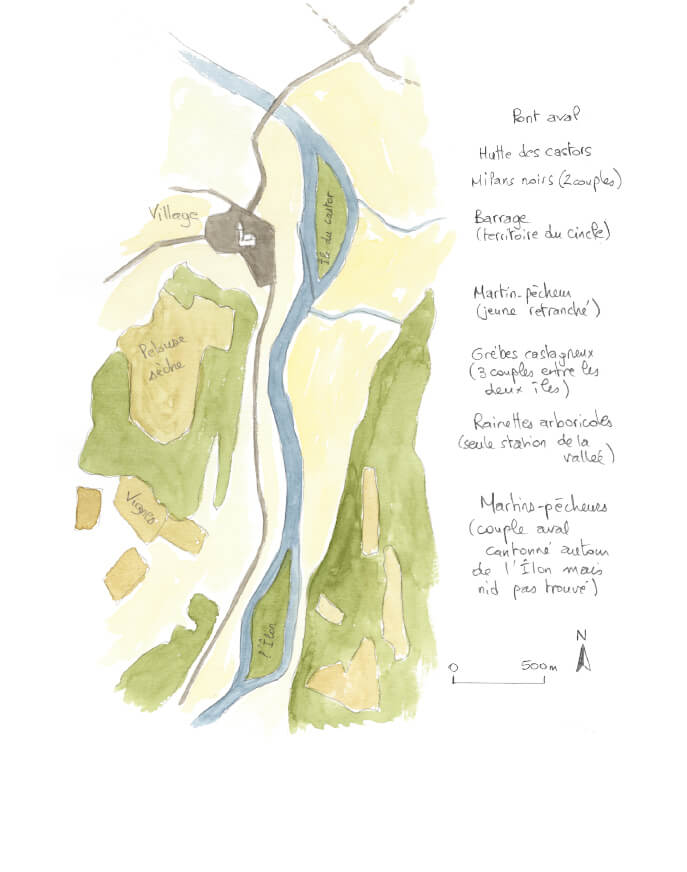 Pont aval
Hutte des castors
Milans noirs (2 couples)
Village
Île du castor
Barrage
(territoire du cincle)
Martin-pêcheur
(jeune retranché)
Pelouse
sèche
Grèbes castagneux
(3 couples entre les
deux îles)
Rainettes arboricoles
(seule station de la
valleé)
Vignes
Martins-pêcheurs
(couple aval
cantonné autour
de l'Îlon mais
nid pas trouvé)
l'Îlon
N
0 500m